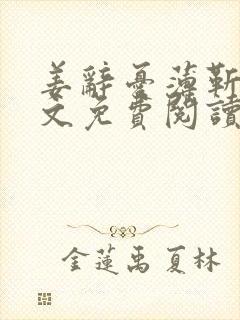 姜辭憂薄靳
文免費閱讀
金蓮禹夏林